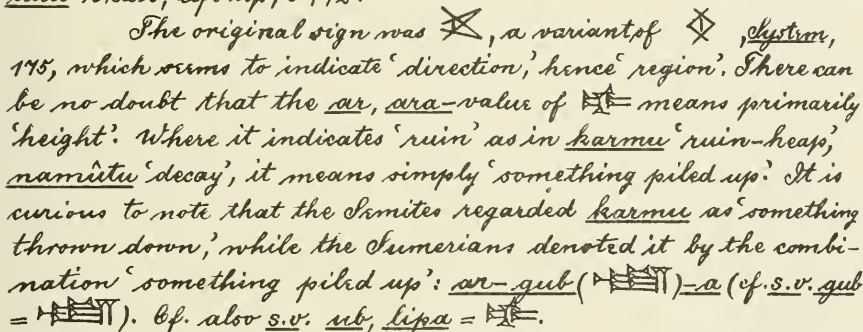 The original sign was , a variant of , System,
175, which seems to indicate ‘direction,’ hence ‘region’. There can
be no doubt that the ar, ara-value of means primarily
‘height’. Where it indicates ‘ruin’ as in karmu ‘ruin-heap,’
namûtu ‘decay’, it means simply ‘something piled up.’ It is
curious to note that the Semites regarded karmu as ‘something
thrown down,’ while the Sumerians denoted it by the combi-
nation ‘something piled up’: ar-gub ( )-a (cf. s.v. gub
= ). Cf. also s.v. ub, lipa = .